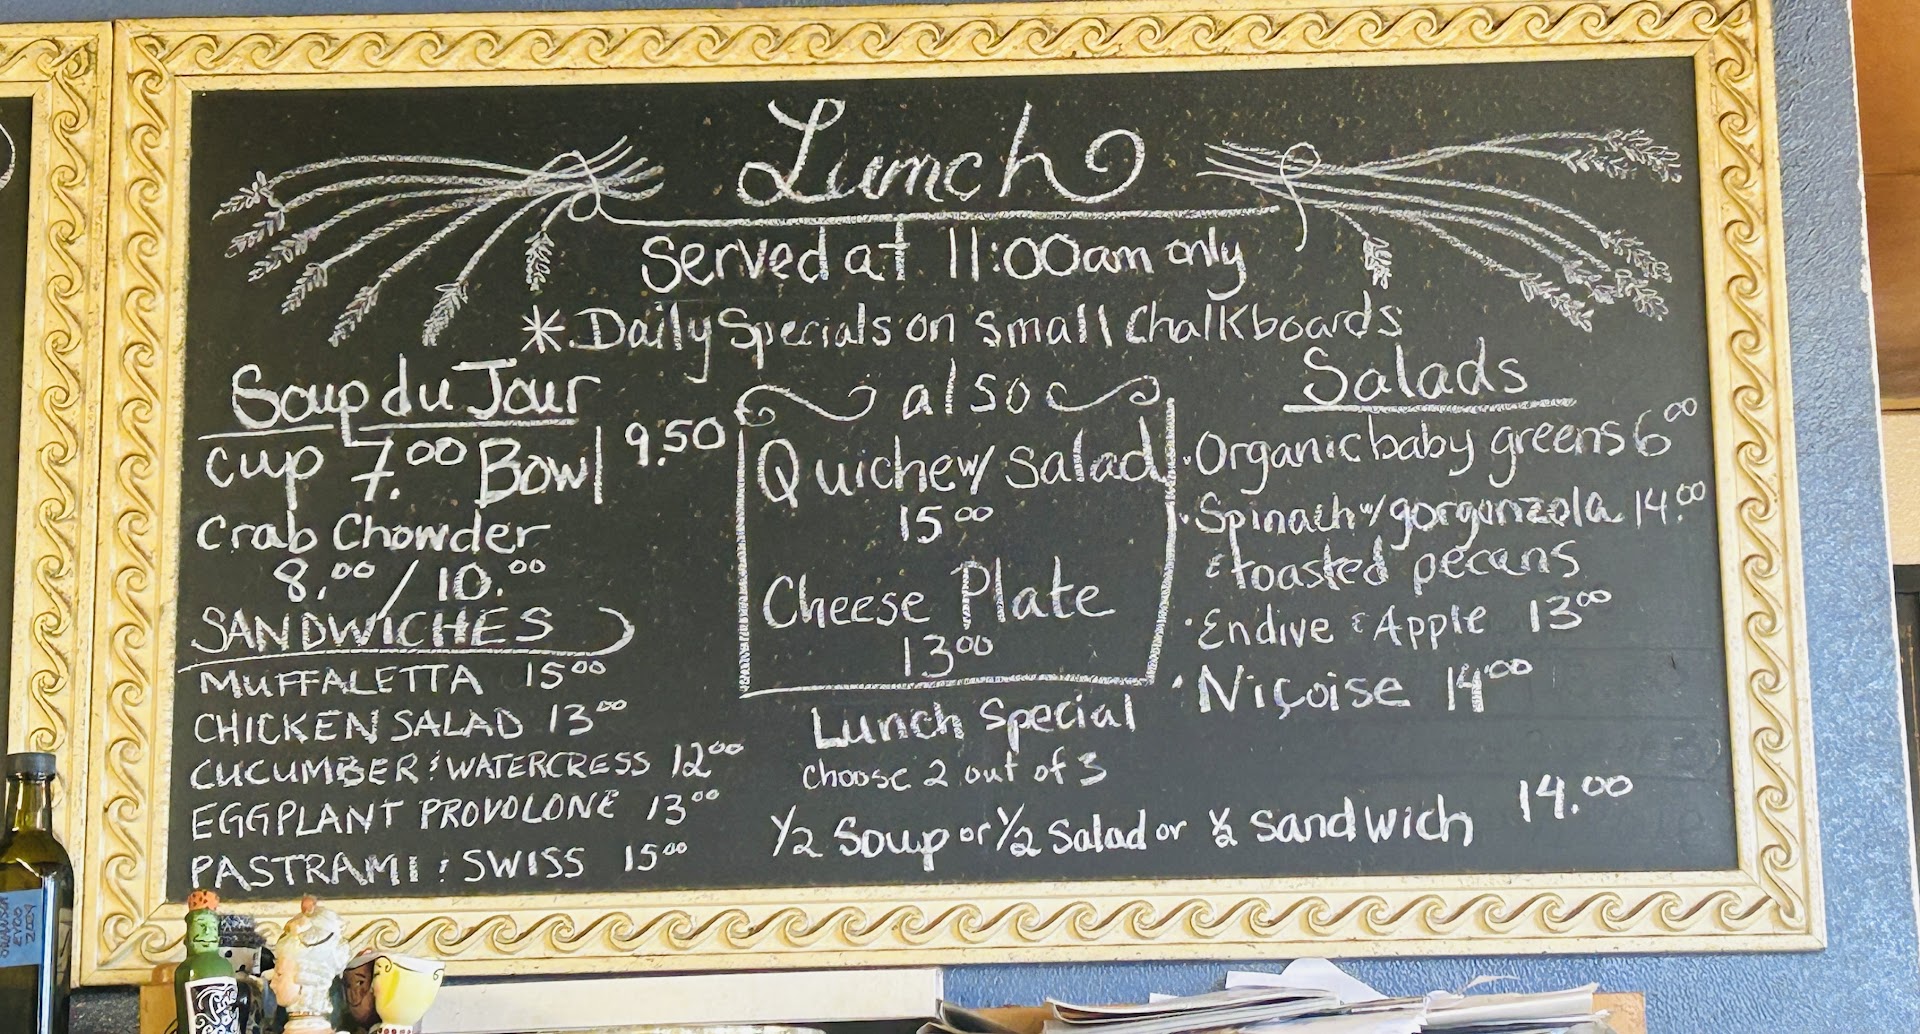 Lunch
Served at 11:00am only
*Daily Specials on Small Chalkboards
Soup du Jour
Cup 7.00 Bowl 9.50
Crab Chowder
8.00 / 10.00
SANDWICHES
MUFFALETTA 15 00
CHICKEN SALAD 13 00
CUCUMBER & WATERCRESS 12 00
EGGPLANT PROVOLONE 13 00
PASTRAMI & SWISS 15 00
also
Quiche w/ Salad
15 00
Cheese Plate
13 00
Lunch Special
Choose 2 out of 3
1/2 Soup or 1/2 Salad or 1/2 Sandwich 14.00
Salads
• Organic baby greens 6 00
• Spinach w/ gorgonzola 14.00
& toasted pecans
• Endive & Apple 13 00
• Niçoise 14 00